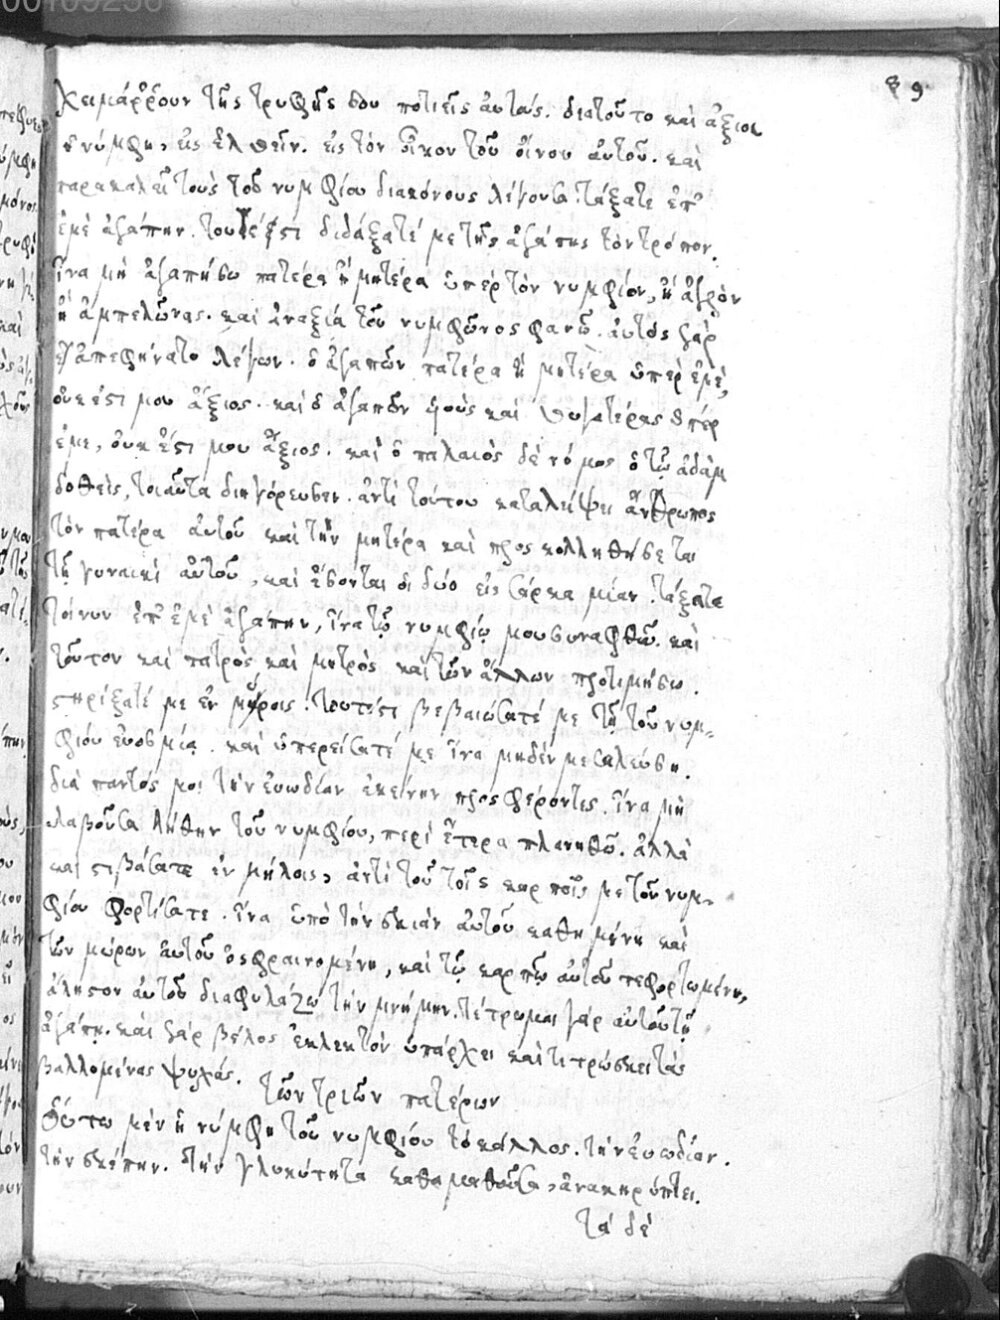 89
χειμάῤῥουν τῆς τρυφῆς σου ποτιεῖς αὐτούς. διατοῦτο καὶ ἀξιοῖ
ἡ νύμφη, εἰς ἐλθεῖν. εἰς τὸν οἶκον τοῦ οἴνου αὐτοῦ. καὶ
παρακαλεῖ τοὺς τοῦ νυμφίου διακόνους λέγουσα. τάξατε ἐπ'
ἐμὲ ἀγάπην. τουτέστι διδάξατέ με τῆς ἀγάπης τὸν τρόπον.
ἵνα μὴ ἀγαπήσω πατέρα ἢ μητέρα ὑπὲρ τὸν νυμφίον, ἢ ἀγρὸν
ἢ ἀμπελῶνας. καὶ ἀναξία τοῦ νυμφῶνος φανῶ. αὐτὸς γὰρ
ἀπεφήνατο λέγων. ὁ ἀγαπῶν πατέρα ἢ μητέρα ὑπὲρ ἐμὲ,
οὐκ ἔστι μου ἄξιος. καὶ ὁ ἀγαπῶν υἱοὺς καὶ θυγατέρας ὑπὲρ
ἐμὲ, οὐκ ἔστι μου ἄξιος. καὶ ὁ παλαιὸς δὲ νόμος ὁ τῷ ἀδὰμ
δοθεὶς, τοιαῦτα διηγόρευσεν. ἀντὶ τούτου καταλείψει ἄνθρωπος
τὸν πατέρα αὐτοῦ καὶ τὴν μητέρα καὶ προσκολληθήσεται
τῇ γυναικὶ αὐτοῦ, καὶ ἔσονται οἱ δύο εἰς σάρκα μίαν. τάξατε
τοίνυν ἐπ' ἐμὲ ἀγάπην, ἵνα τῷ νυμφίῳ μου συναφθῶ καὶ
τοῦτον καὶ πατρὸς καὶ μητρὸς καὶ τῶν ἄλλων προτιμήσω.
στηρίξατέ με ἐν μύροις. τουτέστι βεβαιώσατέ με τῇ τοῦ νυμ-
φίου εὐοσμίᾳ. καὶ ὑπερείσατε με ἵνα μηδέν με σαλεύσῃ.
διὰ παντὸς μοι τὴν εὐωδίαν ἐκείνην προσφέροντες. ἵνα μὴ
λαβοῦσα λήθην τοῦ νυμφίου, περὶ ἕτερα πλανηθῶ. ἀλλὰ
καὶ στιβάσατε ἐν μήλοις, ἀντὶ τοῦ τοῖς καρποῖς με τοῦ νυμ-
φίου φορτίσατε. ἵνα ὑπὸ τὴν σκιὰν αὐτοῦ καθημένη καὶ
τῶν μύρων αὐτοῦ ὀσφραινομένη, καὶ τῷ καρπῷ αὐτοῦ πεφορτωμένη,
ἄληστον αὐτοῦ διαφυλάξω τὴν μνήμην. τέτρωμαι γὰρ αὐτοῦ τῇ
ἀγάπῃ. καὶ γὰρ βέλος ἐκλεκτὸν ὑπάρχει καὶ τιτρώσκει τὰς
βαλλομένας ψυχάς. τῶν τριῶν πατέρων
οὕτω μὲν ἡ νύμφη τοῦ νυμφίου τὸ κάλλος. τὴν εὐωδίαν.
τὴν σκέπην. τὴν γλυκύτητα καθαμαθοῦσα, ἀνακηρύττει.
τὰ δὲ